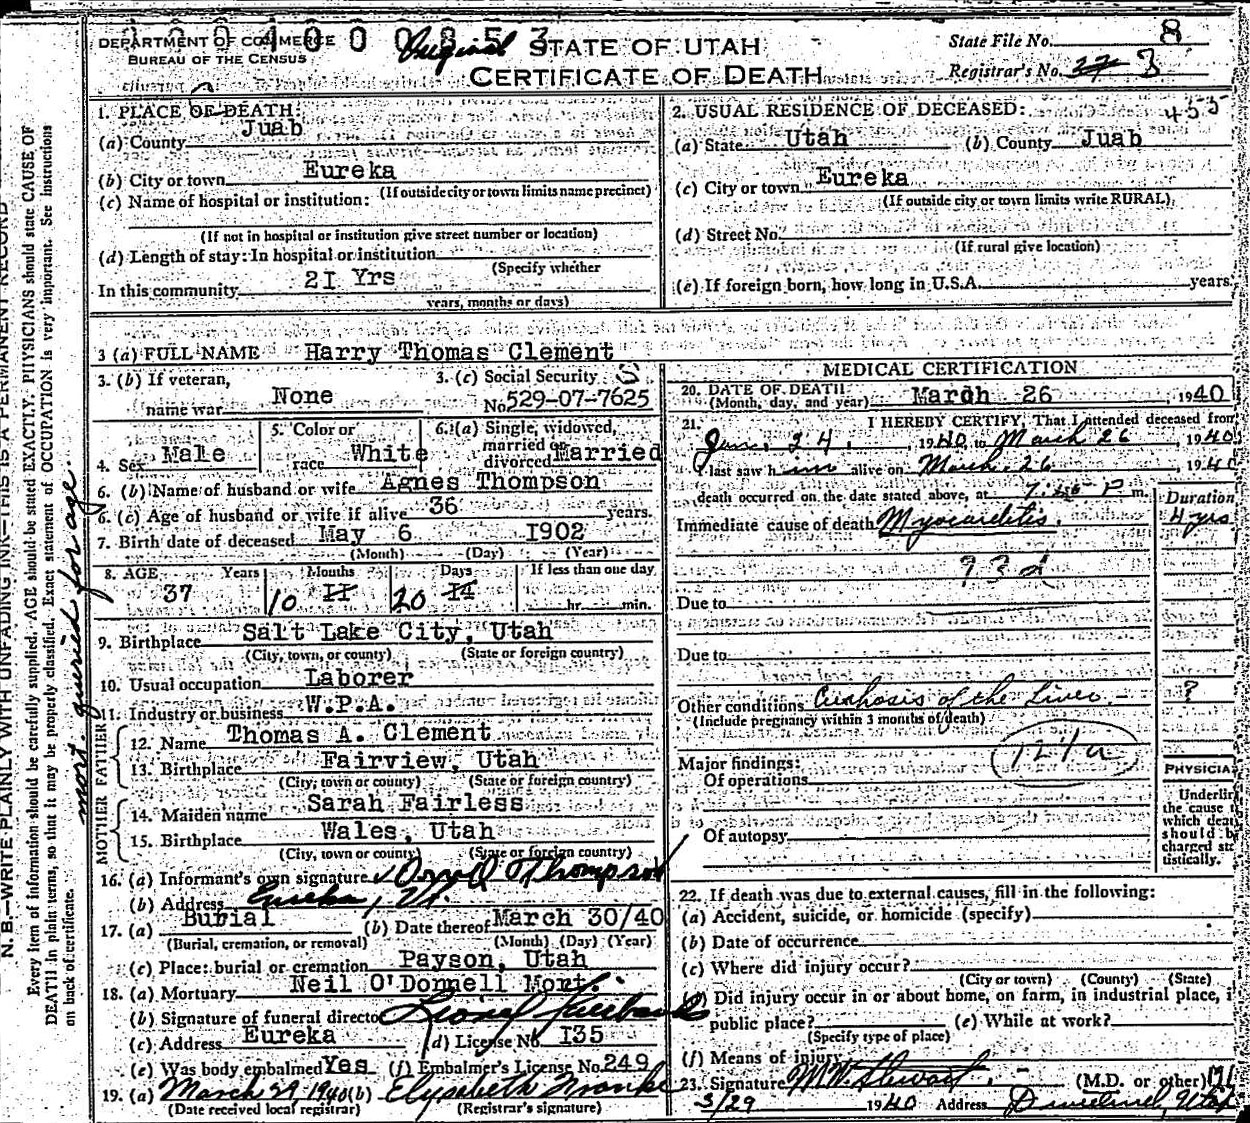 DEPARTMENT OF COMMERCE
BUREAU OF THE CENSUS
Original STATE OF UTAH
CERTIFICATE OF DEATH
State File No. 8
Registrar's No. 27 3
1. PLACE OF DEATH:
(a) County Juab
(b) City or town Eureka
(If outside city or town limits name precinct)
(c) Name of hospital or institution:
(If not in hospital or institution give street number or location)
(d) Length of stay: In hospital or institution
(Specify whether
In this community 2I Yrs
years, months or days)
2. USUAL RESIDENCE OF DECEASED: 455
(a) State Utah (b) County Juab
(c) City or town Eureka
(If outside city or town limits write RURAL)
(d) Street No.
(If rural give location)
(e) If foreign born, how long in U.S.A. years.
3 (a) FULL NAME Harry Thomas Clement
3. (b) If veteran,
name war None
3. (c) Social Security
No. 529-07-7625
4. Sex Male
5. Color or
race White
6. (a) Single, widowed,
married or
divorced Married
6. (b) Name of husband or wife Agnes Thompson
6. (c) Age of husband or wife if alive 36 years.
7. Birth date of deceased May 6 I902
(Month) (Day) (Year)
8. AGE Years Months Days If less than one day
37 10 II 20 I4 hr. min.
9. Birthplace Salt Lake City, Utah
(City, town, or county) (State or foreign country)
10. Usual occupation Laborer
11. Industry or business W.P.A.
FATHER
12. Name Thomas A. Clement
13. Birthplace Fairview, Utah
(City, town or county) (State or foreign country)
MOTHER
14. Maiden name Sarah Fairless
15. Birthplace Wales, Utah
(City, town or county) (State or foreign country)
16. (a) Informant's own signature Thompson
(b) Address Eureka, Ut.
17. (a) Burial (b) Date thereof March 30/40
(Burial, cremation, or removal) (Month) (Day) (Year)
(c) Place: burial or cremation Payson, Utah
18. (a) Mortuary Neil O'Donnell Mort.
(b) Signature of funeral director Lionel Fairbanks
(c) Address Eureka (d) License No. I35
(e) Was body embalmed Yes (f) Embalmer's License No. 249
19. (a) March 29, 1940 (b) Elysabeth
(Date received local registrar) (Registrar's signature)
MEDICAL CERTIFICATION
20. DATE OF DEATH
(Month, day, and year) March 26 , 1940
21. I HEREBY CERTIFY, That I attended deceased from
Jan. 24. , 1940 to March 26 1940
I last saw him alive on March 26 , 1940
death occurred on the date stated above, at 7:45 P m.
Duration
Immediate cause of death Myocarditis. 4 yrs
93d
Due to
Due to
Other conditions Cirrhosis of the Liver - ?
(Include pregnancy within 3 months of death)
124a
Major findings:
Of operations
Of autopsy
PHYSICIA
Underlin
the cause t
which deat
should b
charged sta
tistically.
22. If death was due to external causes, fill in the following:
(a) Accident, suicide, or homicide (specify)
(b) Date of occurrence
(c) Where did injury occur?
(City or town) (County) (State)
(d) Did injury occur in or about home, on farm, in industrial place, i
public place? (e) While at work?
(Specify type of place)
(f) Means of injury
23. Signature M.W. Stewart. (M.D. or other) M
3/29 1940 Address Dividend, Utah
N. B.—WRITE PLAINLY WITH UNFADING INK—THIS IS A PERMANENT RECORD
Every item of information should be carefully supplied. AGE should be stated EXACTLY. PHYSICIANS should state CAUSE OF
DEATH in plain terms, so that it may be properly classified. Exact statement of OCCUPATION is very important. See instructions
on back of certificate.
mort. queried for age.